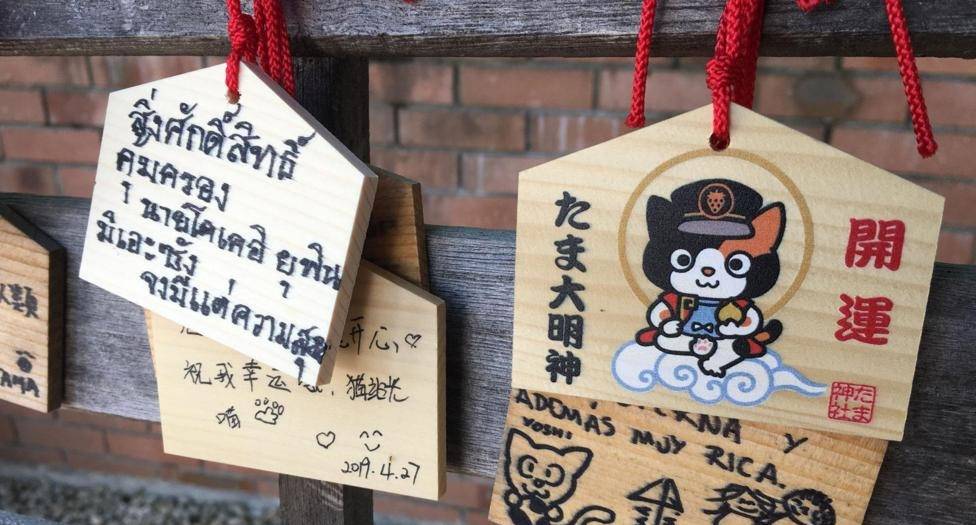 สิ่งศักดิ์สิทธิ์
คุมครอง
นายโคเคอิ ยุฟิน
มิเอะซัง
จงมีแต่ความสุข
开心,♡
祝我幸运
喵
♡
2019.4.27
たま大明神
開運
たま
神社
ADEMAS MUY RICA.
Y
YOSHI